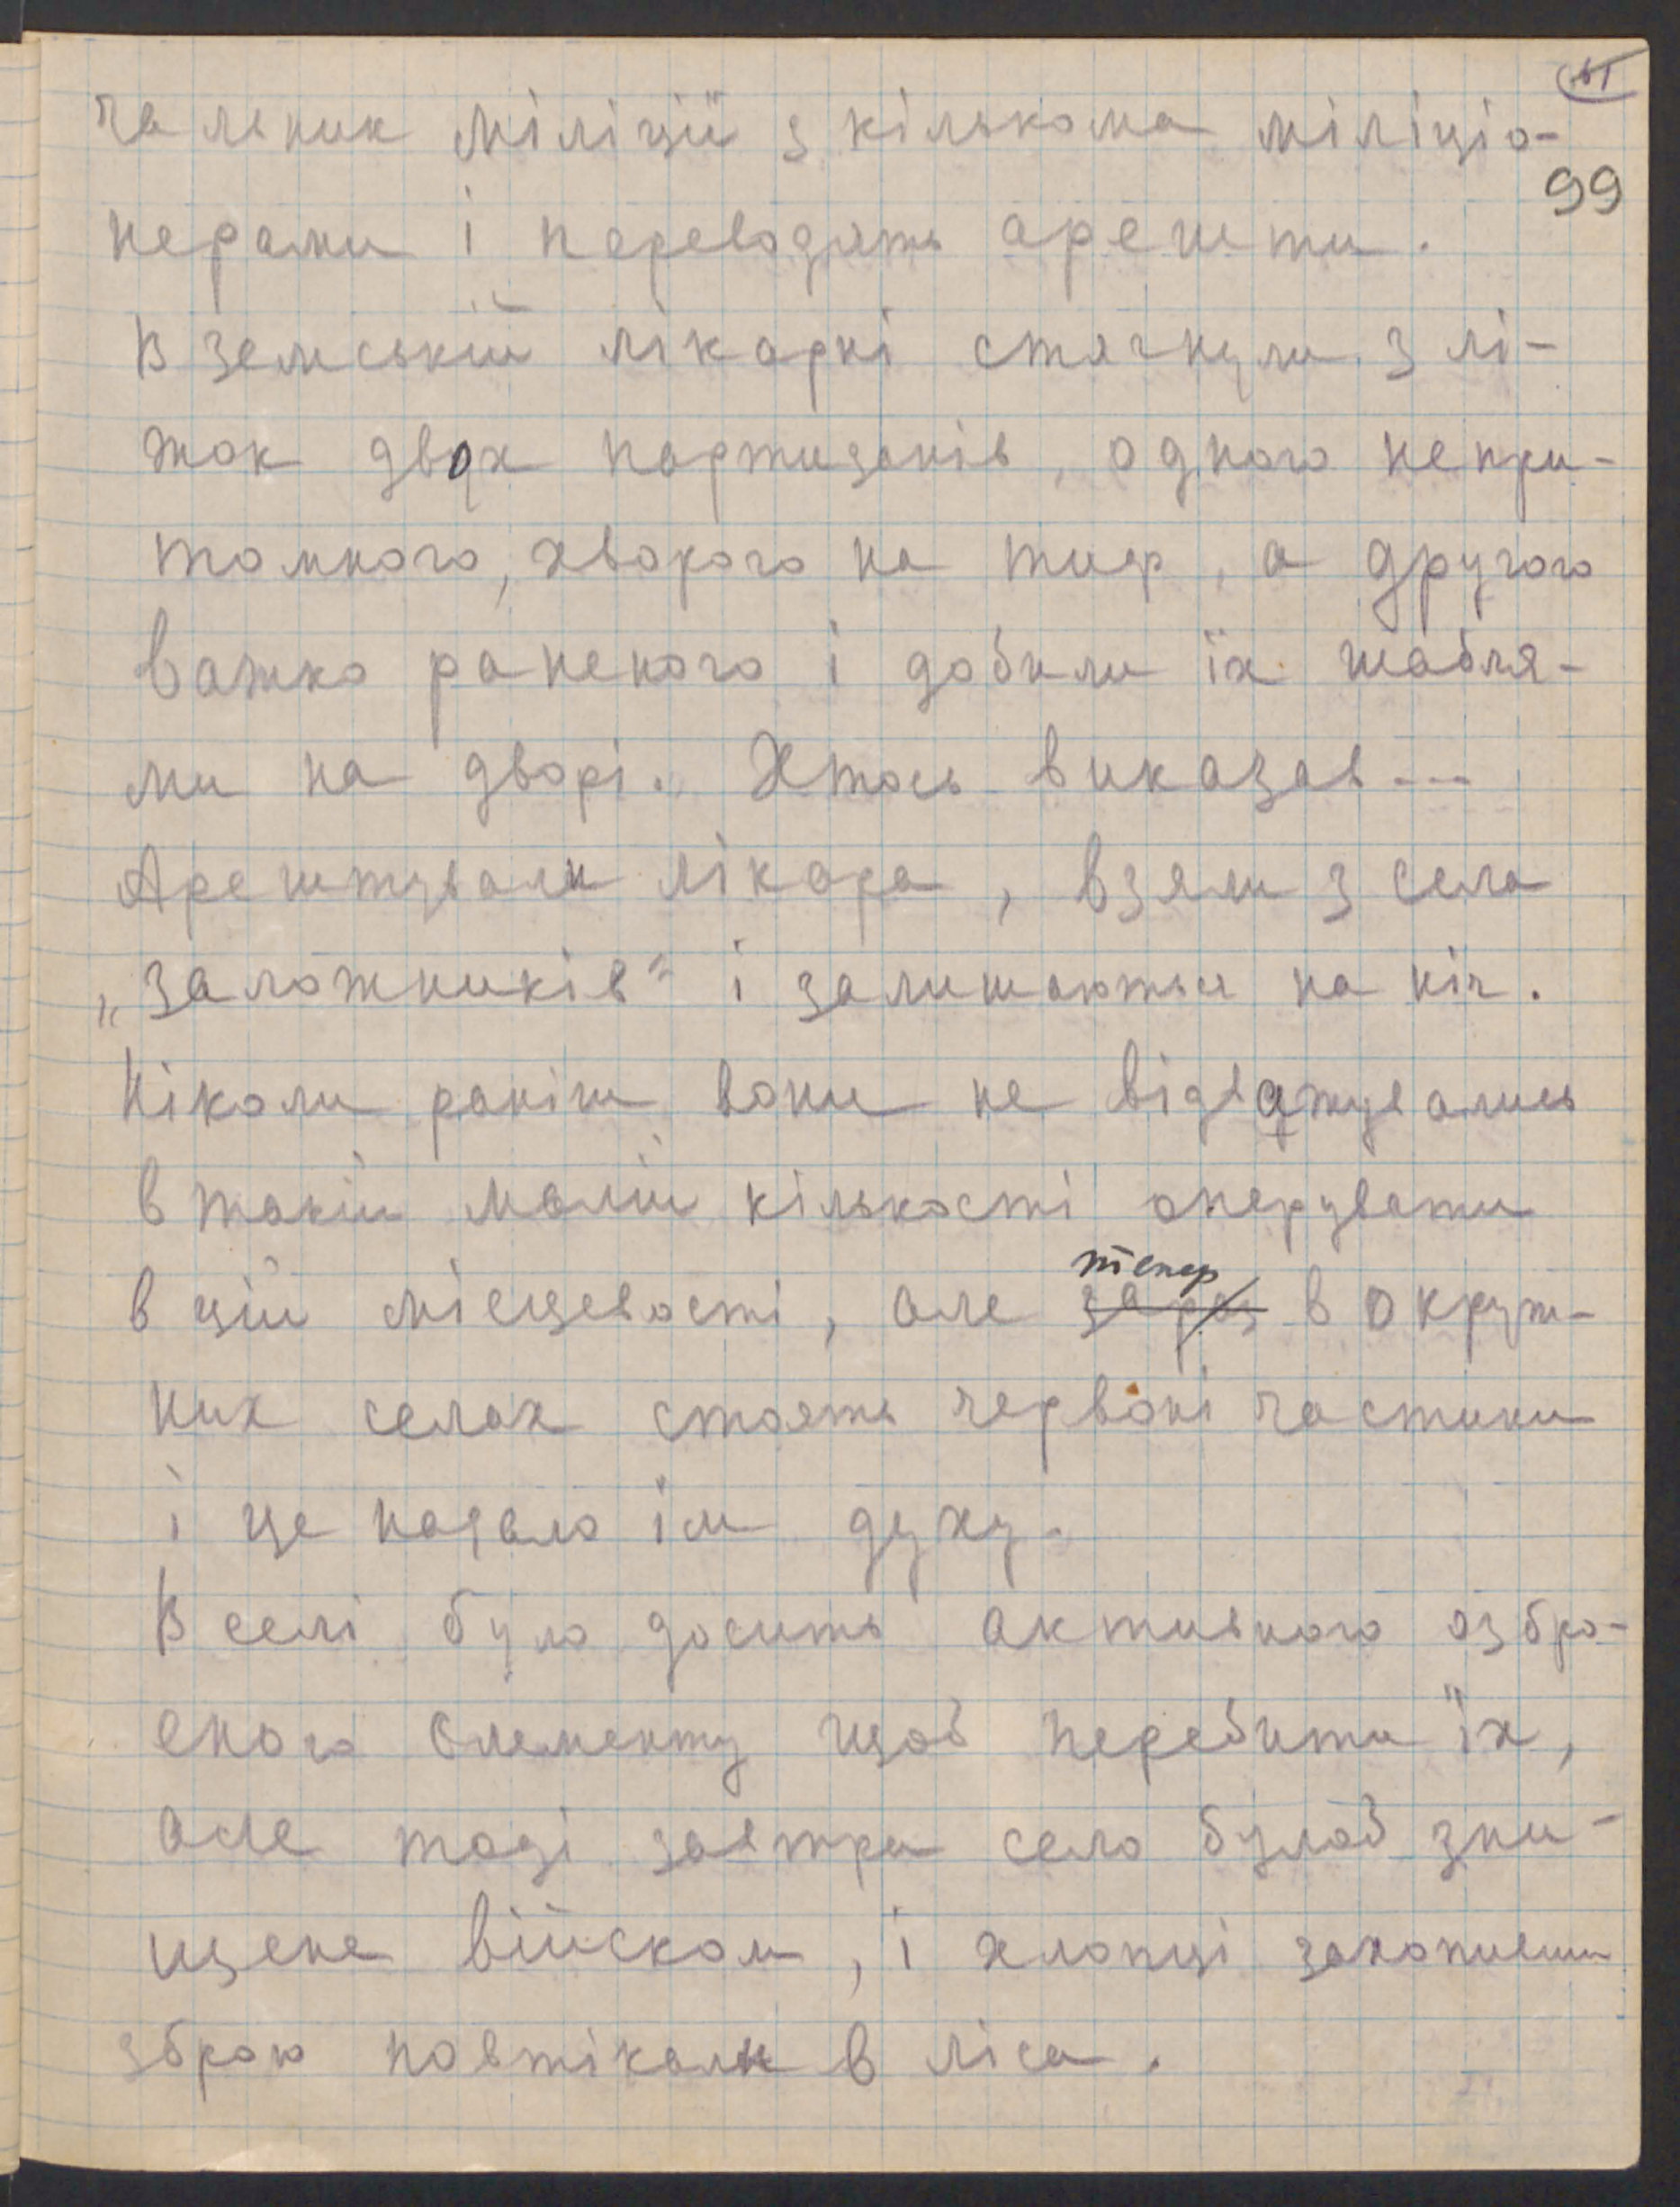 99
чальник міліції з кількома міліціо-
нерами і переводять арешти.
В земській лікарні стягнули з лі-
жок двох партизанів, одного непри-
томного, хворого на тиф, а другого
важко раненого і добили їх шабля-
ми на дворі. Хтось виказав ---
Арештували лікаря, взяли з села
„заложників“ і залишаються на ніч.
Ніколи раніш вони не відважувались
в такій малій кількості оперувати
тепер
в цій місцевості, але зараз в окруж-
них селах стоять червоні частини
і це надало їм духу.
В селі було досить активного озбро-
єного елементу щоб перебити їх,
але тоді завтра село булоб зни-
щене військом, і хлопці захопивши
зброю повтікали в ліса.